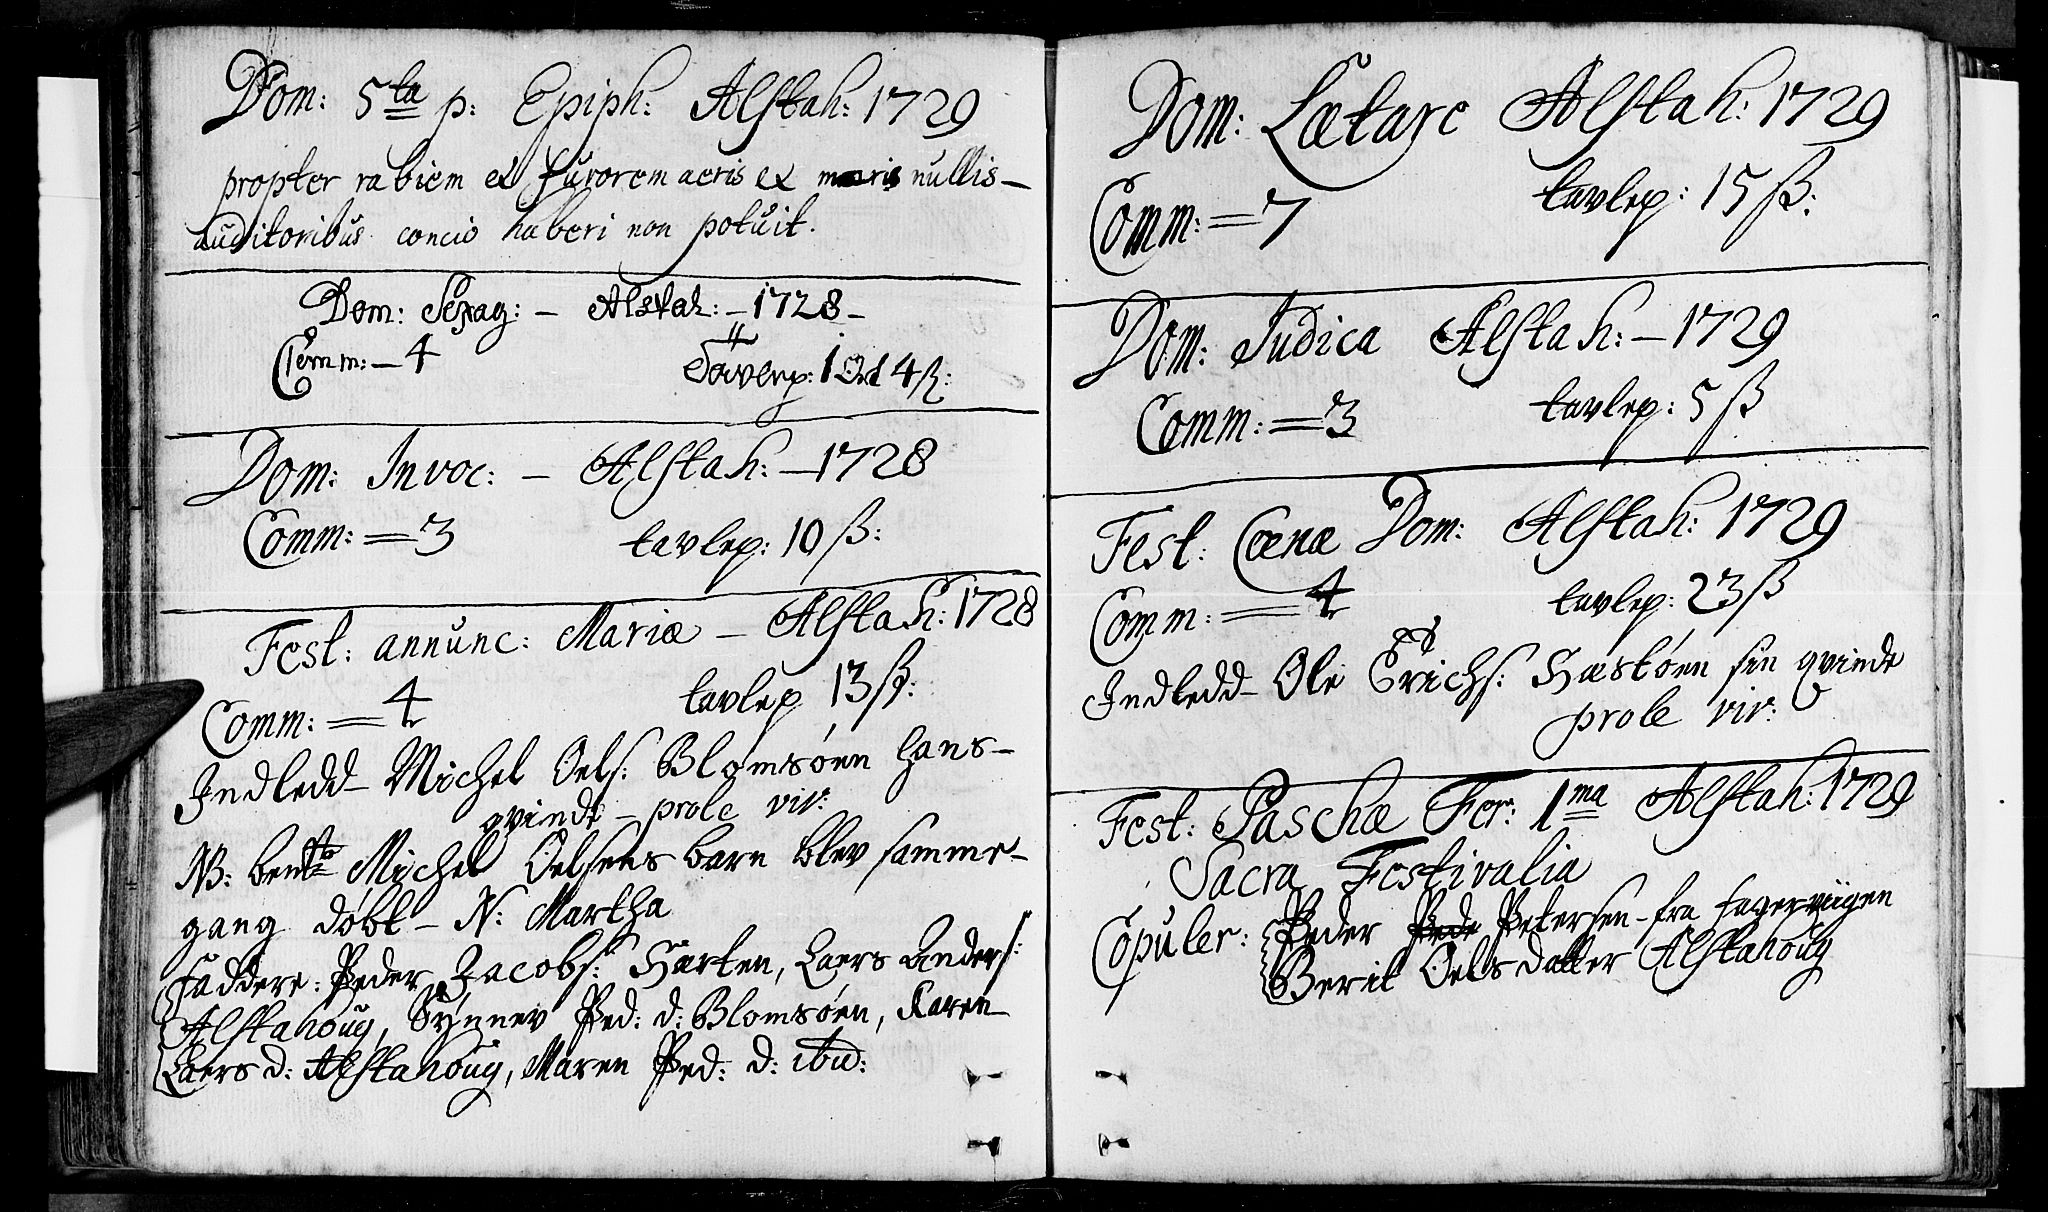 Dom: 5ta p: Epiph: Alstah: 1729
propter rabiem et furorem aeris et maris nullis-
auditoribus concio haberi non potuit.
Dom: Sexag: - Alstah: - 1728 -
Comm: - 4 Tavlep: 1 Ort 4 ß:
Dom: Invoc: - Alstah: - 1728
Comm: = 3 tavlep: 10 ß:
Fest: annunc: Mariæ - Alstah: 1728
Comm: = 4 tavlep 13 ß:
Indledd - Michel Oels: Blomsøen hans -
qvinde - prole viv:
NB: bemte Michel Oelsens barn blev samme -
gang døbt - N: Martha
Faddere: Peder Jacobs: Harten, Laers Anders:
Alstahoug, Synnev Ped: d: Blomsøen, Karen
Laers d: Alstahoug, Maren Ped: d: ibid:
Dom: Lætare Alstah: 1729
Comm: = 7 tavlep: 15 ß:
Dom: Judica Alstah: - 1729
Comm: = 3 tavlep: 5 ß
Fest: Coenæ Dom: Alstah: 1729
Comm: = 4 tavlep: 23 ß
Indledd - Ole Erichs: Hæstøen sin qvinde
prole viv:
Fest: Paschæ Fer: 1ma Alstah: 1729
Sacra Festivalia
Copuler: Peder Pede Petersen - fra fagerviigen
Berit Oels datter Alstahoug